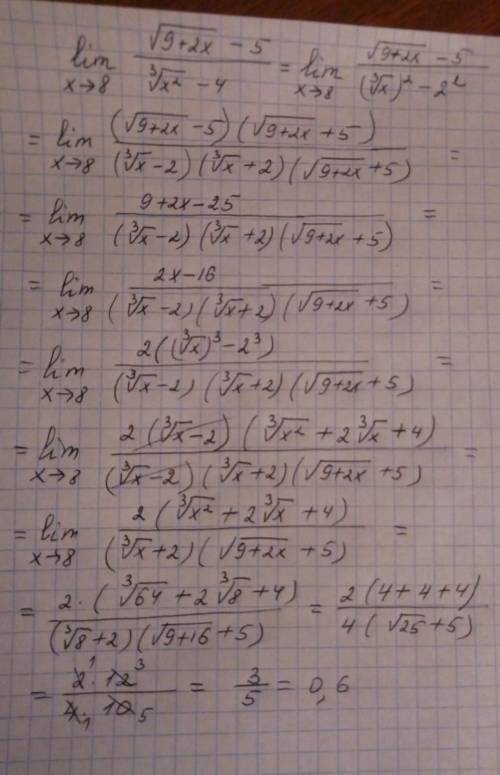 lim x→8 (√(9+2x) − 5)/(∛x² − 4) = lim x→8 (√(9+2x) − 5)/((∛x)² − 2²)
= lim x→8 ((√(9+2x) − 5)(√(9+2x) + 5))/((∛x − 2)(∛x + 2)(√(9+2x) + 5)) =
= lim x→8 (9+2x−25)/((∛x − 2)(∛x + 2)(√(9+2x) + 5)) =
= lim x→8 (2x−16)/((∛x − 2)(∛x + 2)(√(9+2x) + 5)) =
= lim x→8 (2((∛x)³ − 2³))/((∛x − 2)(∛x + 2)(√(9+2x) + 5)) =
= lim x→8 (2(∛x − 2)(∛x² + 2∛x + 4))/((∛x − 2)(∛x + 2)(√(9+2x) + 5)) =
= lim x→8 (2(∛x² + 2∛x + 4))/((∛x + 2)(√(9+2x) + 5)) =
= (2·(∛64 + 2∛8 + 4))/((∛8 + 2)(√(9+16) + 5)) = (2(4+4+4))/(4(√25 + 5))
= (2¹·12³)/(4₁·10₅) = 3/5 = 0,6